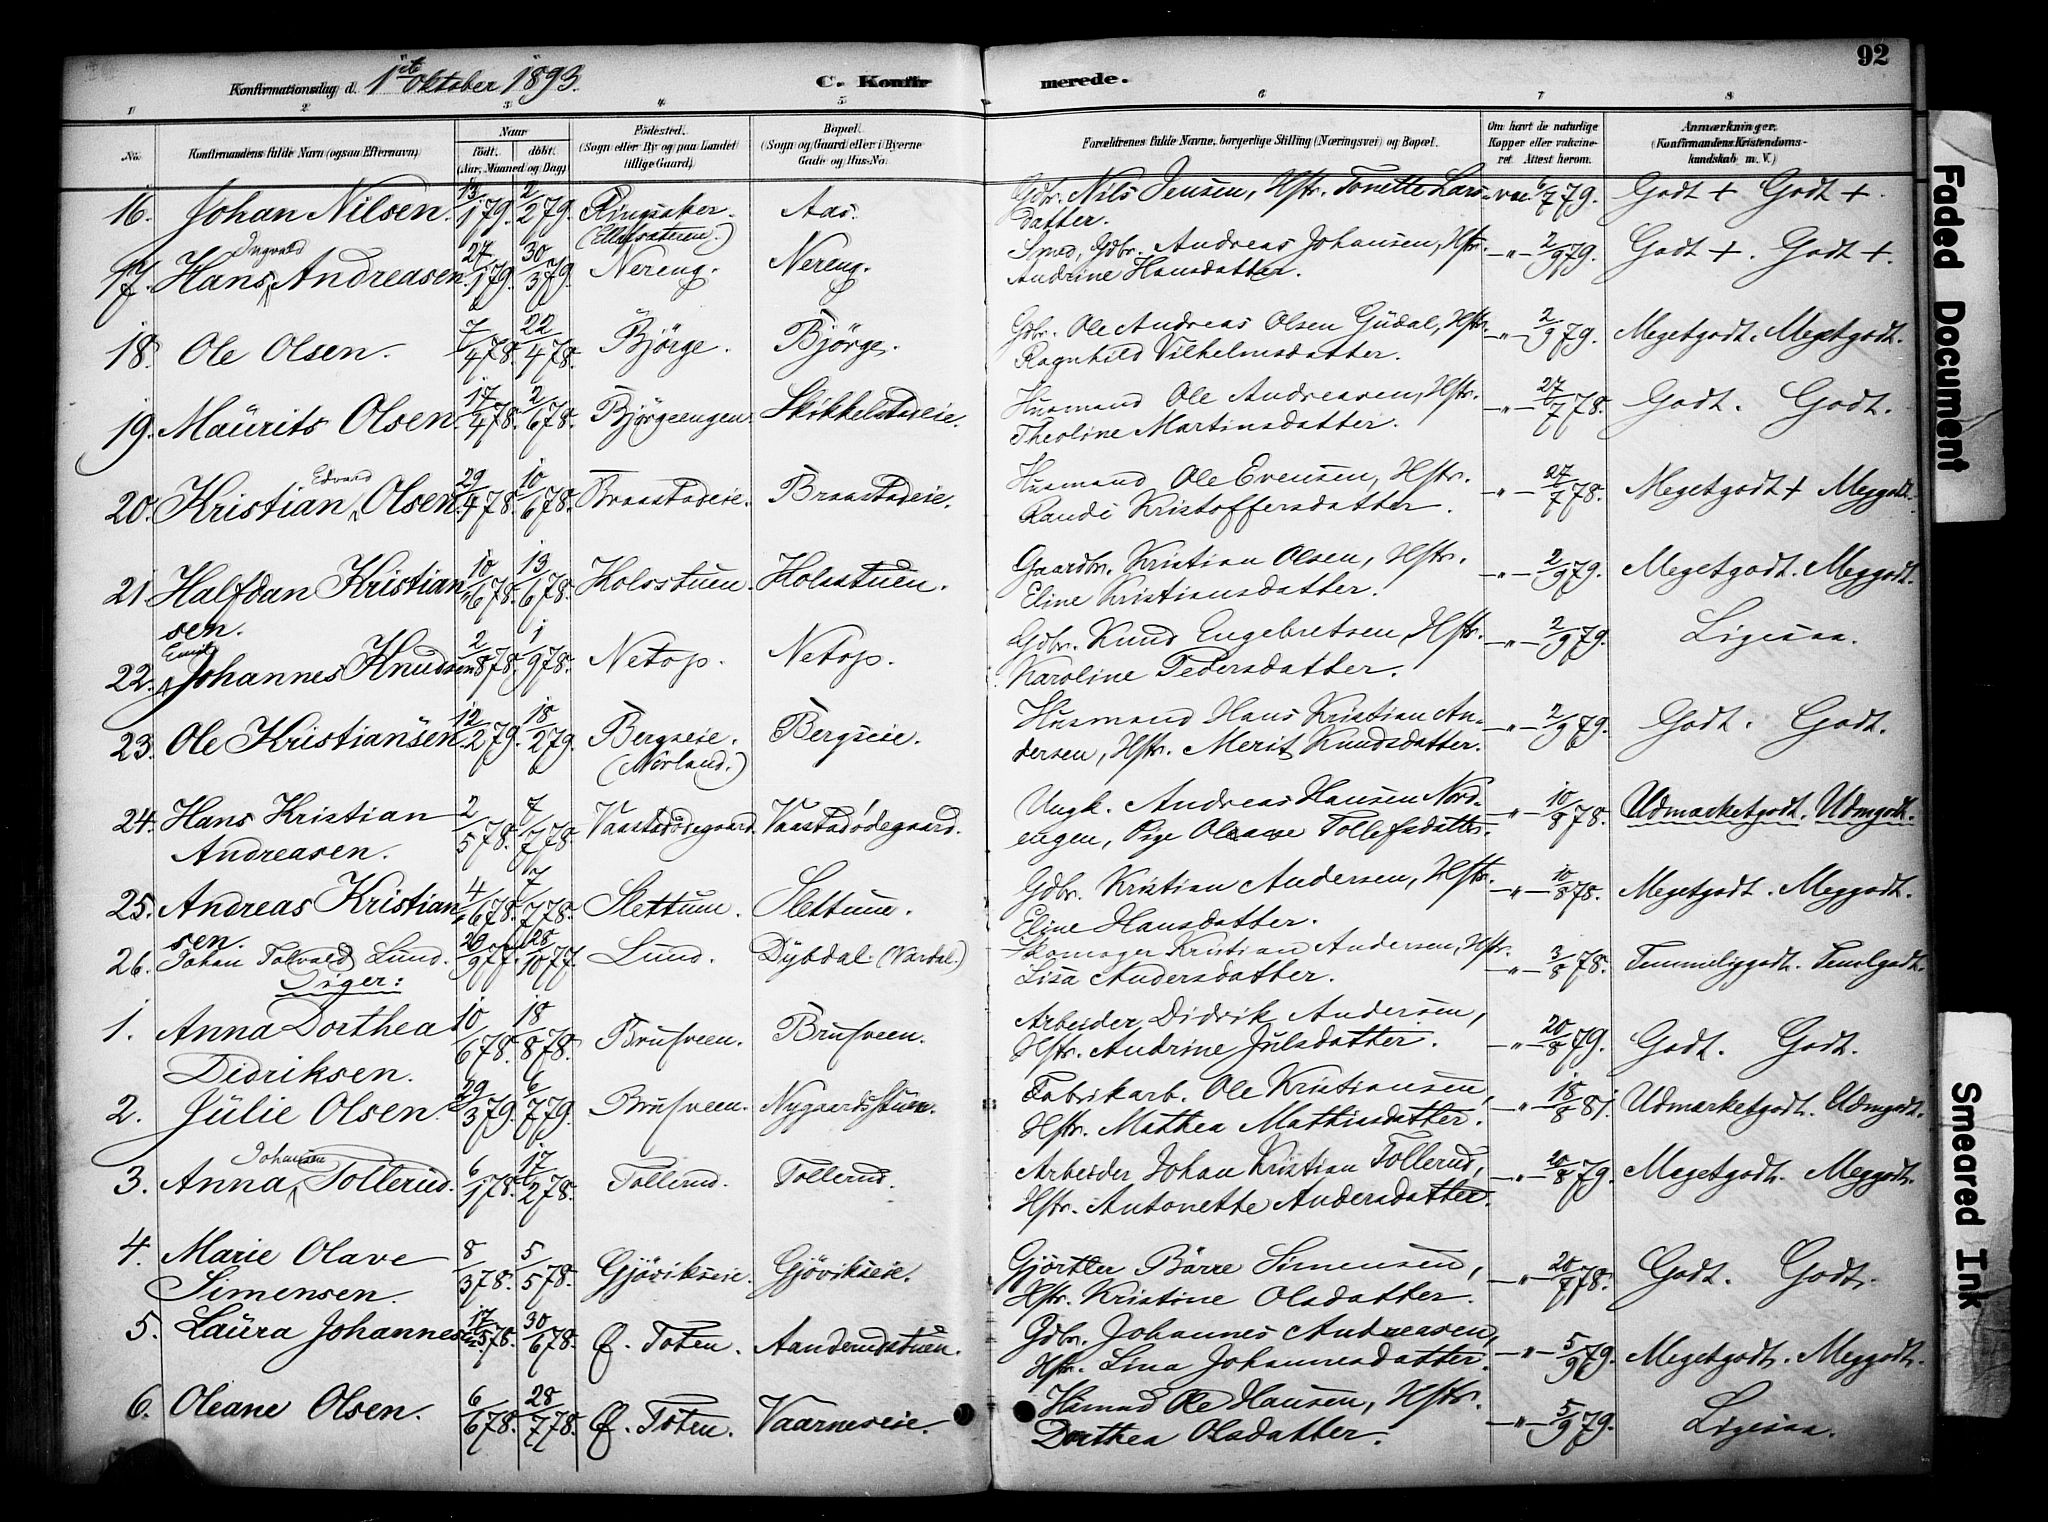 92
Konfirmationsdag d. 1ste Oktober 1893. C. Konfir merede.
1 2 3 4 5 6 7 8
No. Konfirmandens fulde Navn (ogsaa Efternavn). Naar Født. døbt. (Aar, Maaned og Dag) Fødested. (Sogn eller By og paa Landet tillige Gaard). Bopæl. (Sogn og Gaard eller i Byerne Gade og Hus-No. Forældrenes fulde Navne, borgerlige Stilling (Næringsvei) og Bopæl. Om havt de naturlige Kopper eller vaccineret. Attest herom. Anmærkninger. (Konfirmandens Kristendomskundskab m. V.)
16. Johan Nilsen. 13/1 79. 2/2 79. Ringsaker. Aas. Gdbr. Nils Jensen, Hstr. Tonette Lars- vac. 6/7 79. Godt + Godt +
datter.
17. Hans Ingvald Andreasen. 27/1 79. 30/3 79. Nereng. Nereng. Smed, Gdbr. Andreas Johansen, Hstr. -"- 2/9 79. Godt +. Godt +.
Andrine Hansdatter.
18. Ole Olsen. 7/4 78. 22/4 78. Bjørge. Bjørge. Gdbr. Ole Andreas Olsen Gudal, Hstr. -"- 2/9 79. Megetgodt. Megetgodt.
Ragnhild Vilhelmsdatter.
19. Maurits Olsen. 17/4 78. 2/6 78. Bjørgeengen. Skikkelstadeie. Husmand Ole Andreasen, Hstr. -"- 27/7 78. Godt. Godt.
Theoline Martinsdatter.
20. Kristian Edvard Olsen. 29/4 78. 10/6 78. Braastadeie. Braastadeie. Husmand Ole Evensen, Hstr. -"- 27/7 78. Megetgodt + Meggodt.
Randi Kristoffersdatter.
21. Halfdan Kristian 10/6 78. 13/6 78. Holsstuen. Holsstuen. Gaardbr. Kristian Olsen, Hstr. -"- 2/9 79. Megetgodt. Meggodt.
sen. Eline Kristiansdatter.
22. Emil Johannes Knudsen 2/8 78. 1/9 78. Netop. Netop. Gdbr. Knud Engebretsen, Hstr. -"- 2/9 79. Ligesaa.
Karoline Pedersdatter.
23. Ole Kristiansen. 12/2 79. 18/2 79. Bergseie. Bergseie. Husmand Hans Kristian An- -"- 2/9 79. Godt. Godt.
(Nørland.) dersen, Hstr. Merit Knudsdatter.
24. Hans Kristian 2/5 78. 7/7 78. Vaastadødegaard. Vaastadødegaard. Ungk. Andreas Hansen Nord- -"- 10/8 78. Udmarketgodt. Udmgodt.
Andreasen. engen, Pige Oleane Tollefsdatter.
25. Andreas Kristian 4/6 78. 7/7 78. Slettum. Slettum. Gdbr. Kristian Andersen, Hstr. -"- 10/8 78. Megetgodt. Meggodt.
sen. Eline Hansdatter.
26. Johan Tolvald Lund. 20/9 77. 28/10 77. Lund. Dybdal (Vardal.) Skomager Kristian Andersen, Hstr. -"- 3/8 78. Temmeliggodt. Temelgodt.
Lisa Andersdatter.
Piger:
1. Anna Dorthea 10/6 78. 18/8 78. Brusveen. Brusveen. Arbeider Didrik Andersen, -"- 20/8 79. Godt. Godt.
Didriksen. Hstr. Andrine Julsdatter.
2. Julie Olsen. 29/3 79. 6/7 79. Brusveen. Nygaardsstuen. Fabrikarb. Ole Kristiansen, -"- 18/8 81. Udmarketgodt. Udmgodt.
Hstr. Mathea Mathisdatter.
3. Anna Johansen Tollerud. 6/1 78. 17/2 78. Tollerud. Tollerud. Arbeider Johan Kristian Tollerud, -"- 20/8 79. Megetgodt. Meggodt.
Hstr. Antonette Andersdatter.
4. Marie Olave 8/3 78. 5/5 78. Gjøvikseie. Gjøvikseie. Gjørtler Børre Simensen, -"- 20/7 78. Godt. Godt.
Simensen. Hstr. Kristine Olsdatter.
5. Laura Johannesen. 17/5 78. 30/6 78. Ø. Toten. Gdbr. Johannes Andreasen, -"- 5/9 79. Megetgodt. Meggodt.
Hstr. Lina Johannesdatter.
6. Oleane Olsen. 6/6 78. 28/7 78. Ø. Toten. Vaarneseie. Husmd Ole Hansen, Hstr. -"- 5/9 79. Ligesaa.
Dorthea Olsdatter.
Faded Document
Smeared Ink